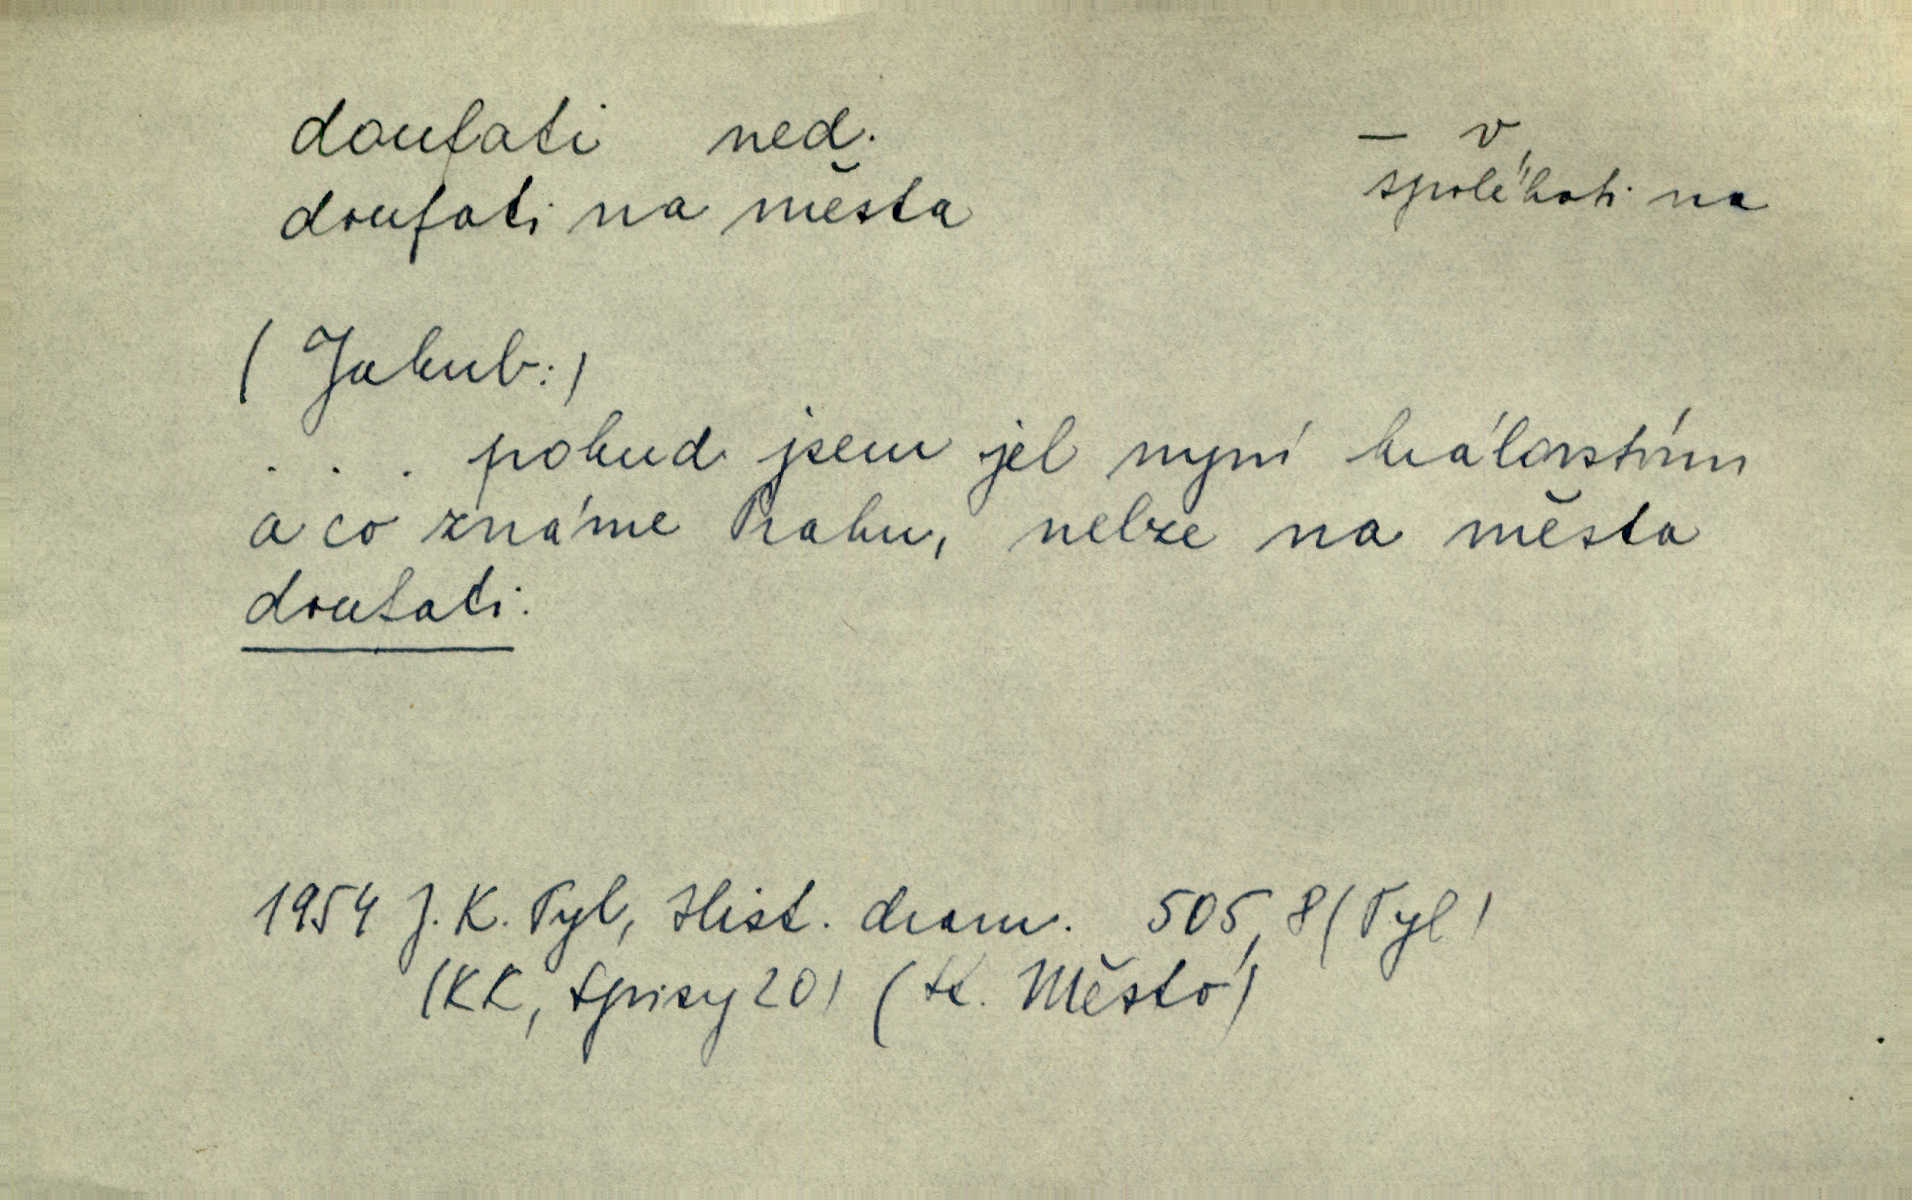 doufati ned.
doufati na města
– v,
spoléhati na
(Jakub:)
. . . pokud jsem jel nyní královstvím
a co známe Prahu, nelze na města
doufati.
1954 J. K. Tyl, Hist. dram. 505, 8 (Tyl)
(KK, Spisy 20) (St. Město)